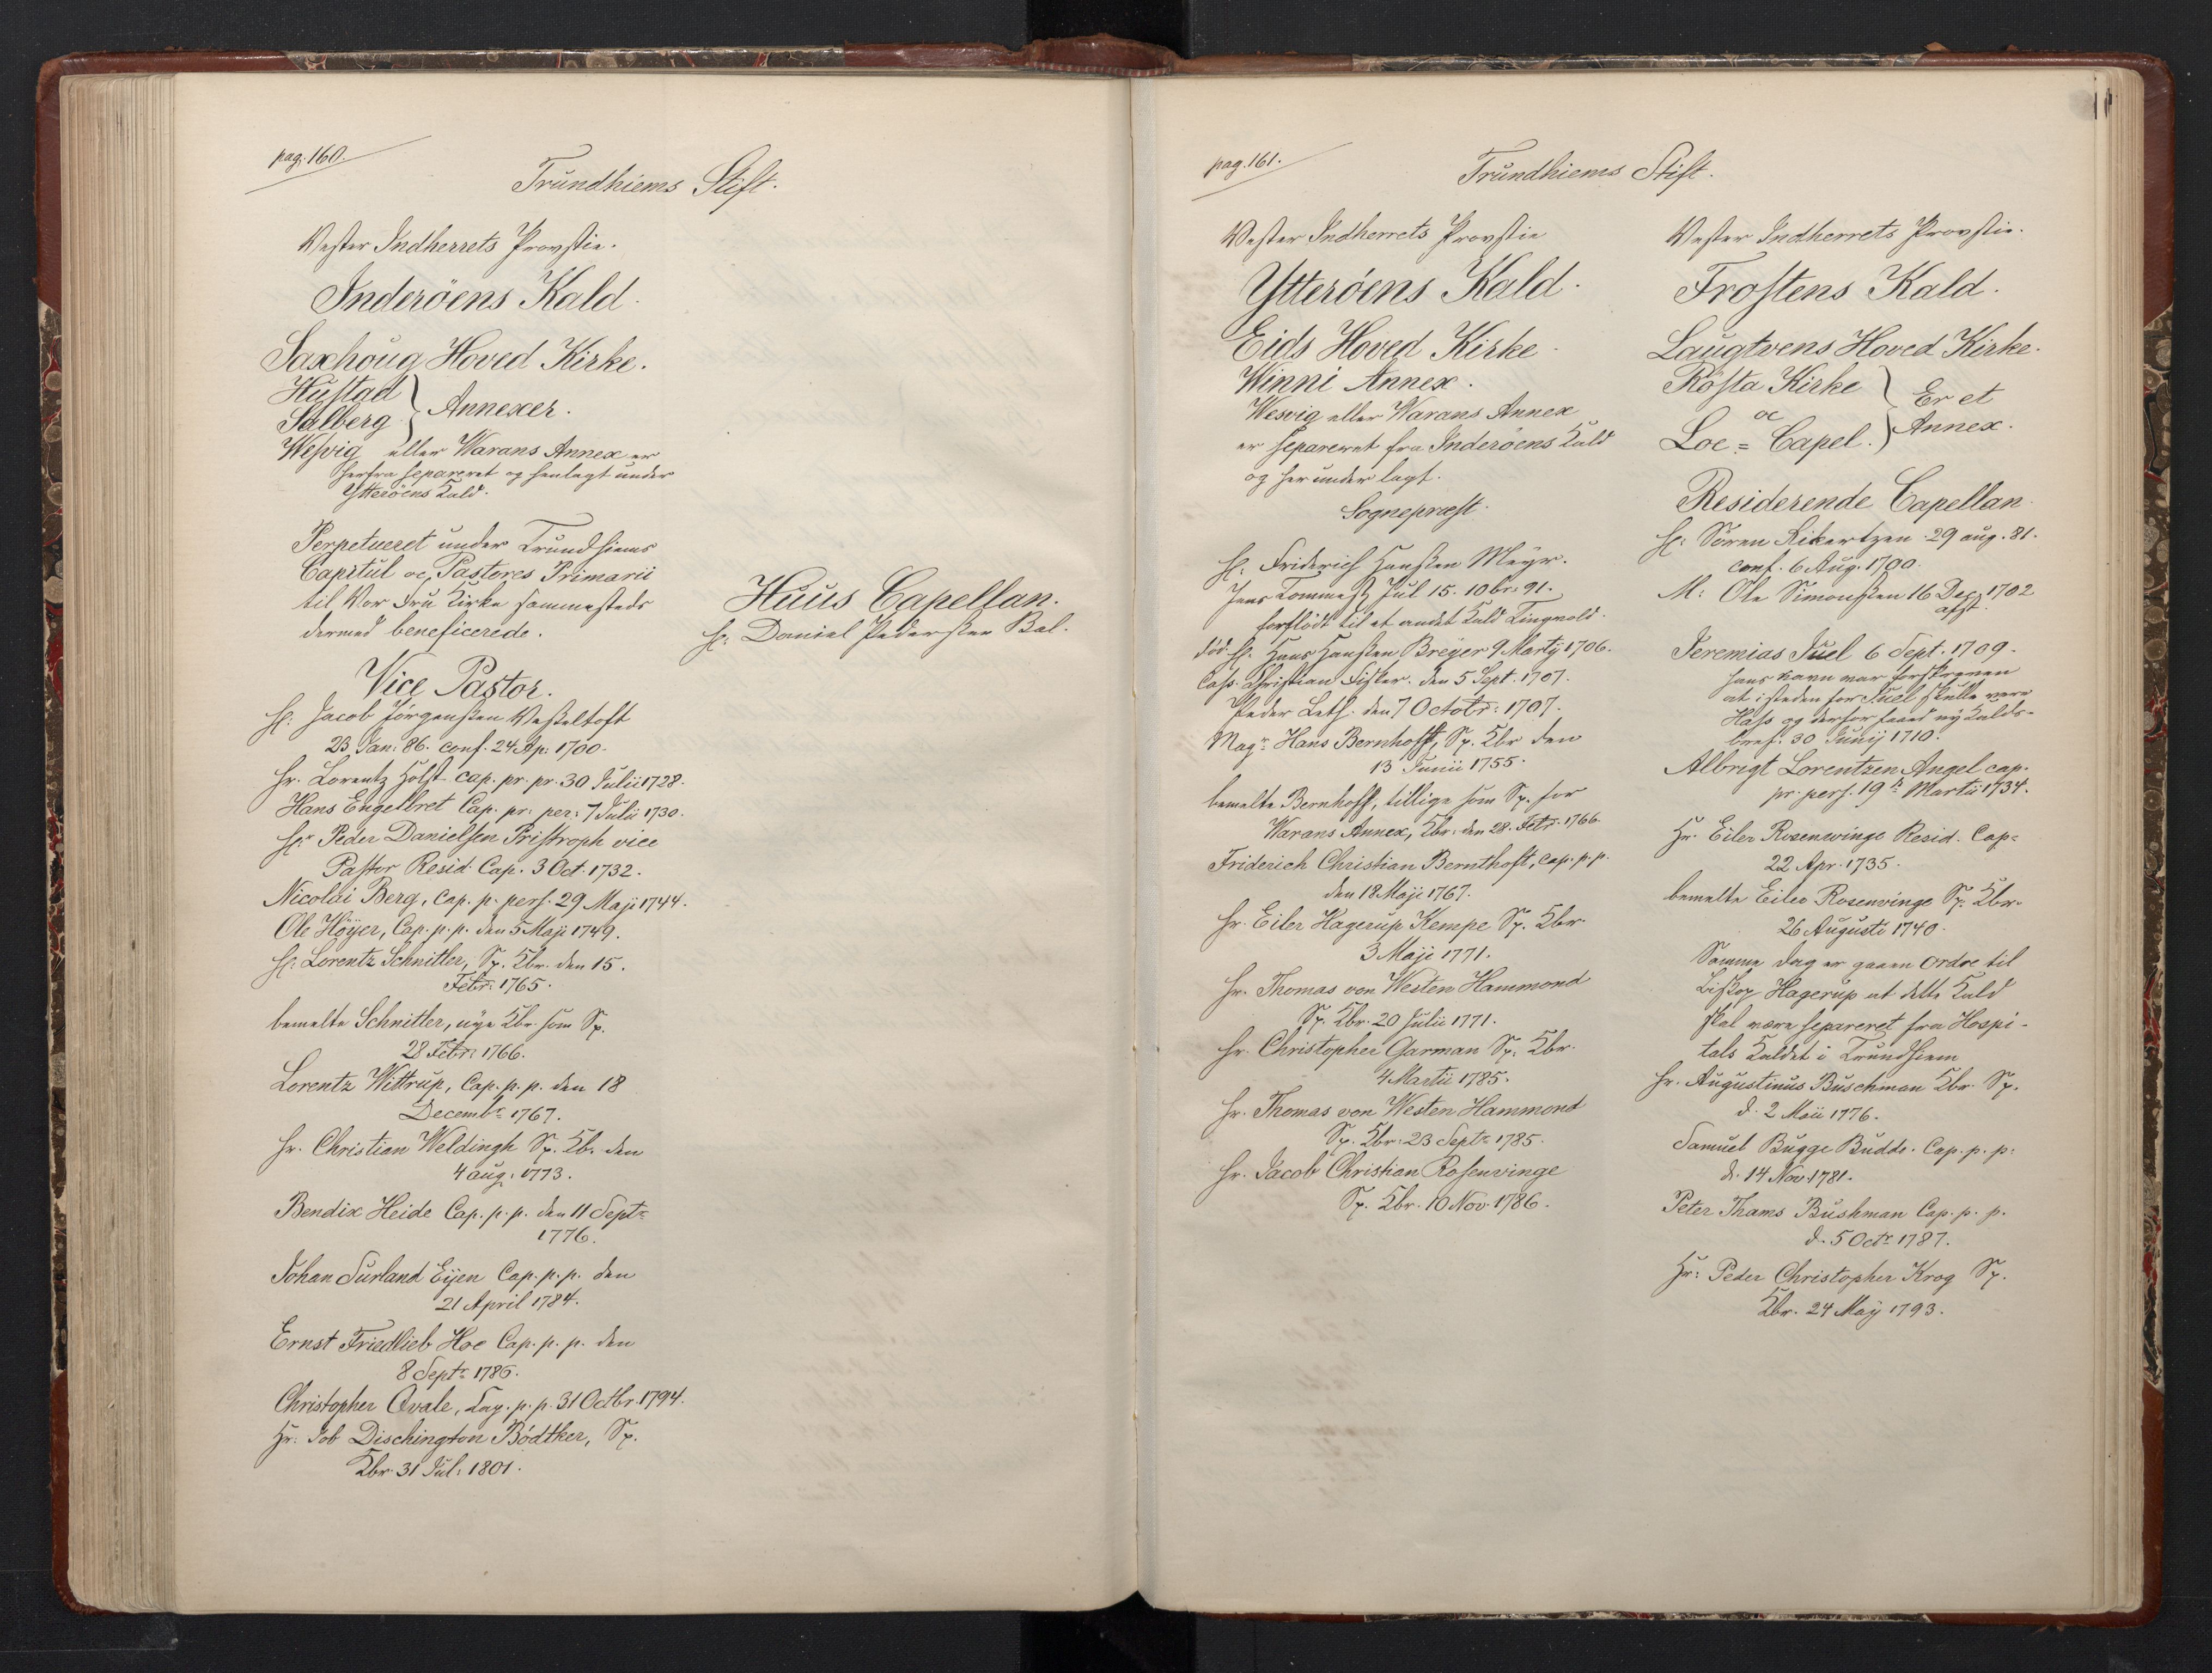 pag. 160.
Trundhiems Stift.
Vester Indherrets Provstie.
Inderöens Kald.
Saxhoug Hoved Kirke.
Hustad
Salberg } Annexer.
Wesvig eller Warans Annex er
herfra separeret og henlagt under
Ytteröens Kald.
Perpetueret under Trundhiems
Capitul oc Pastores Primarii
til Vor Fru Kirke sammesteds
dermed beneficerede.
Vice Pastor.
Hr. Jacob Jørgensen Wesseltoft
23 Jan: 86. conf. 24 Ap: 1700.
Hr. Lorentz Holst cap. pr. pr. 30 Julii 1728.
Hans Engelbret Cap. pr: per: 7 Julii 1730.
Hr. Peder Danielsen Pristroph vice
Pastor Resid: Cap. 3 Oct. 1732.
Nicolai Berg, Cap. p. pers. 29 Maji 1744.
Ole Höyer, Cap. p. p. den 5 Maji 1749.
Hr. Lorentz Schnitler, Sp. Kbr. den 15.
Febr: 1765.
bemelte Schnitler, nye Kbr. som Sp.
28 Febr: 1766.
Lorentz Wittrup, Cap. p. p. den 18
Decembr. 1767.
Hr. Christian Weldingh Sp. Kb. den
4 aug. 1773.
Bendix Heide Cap. p. p. den 11 Septr.
1776.
Johan Surland Eyen Cap. p. p. den
21 April 1784.
Ernst Friedlieb Hoe Cap. p. p. den
8 Septr. 1786.
Christopher Qvale, Cap. p. p. 31 Octbr. 1794.
Hr. Job Dischington Bödtker, Sp.
Kbr. 31 Jul: 1801.
Huus Capellan.
Hr. Daniel Pedersen Bal.
pag. 161.
Trundhiems Stift.
Vester Indherrets Provstie
Ytteröens Kald.
Eids Hoved Kirke.
Winni Annex.
Wesvig eller Warans Annex
er separeret fra Inderöens Kald
og her under lagt.
Sognepræst.
Hr. Friderich Hansen Meyr.
Jens Tommes. Jul 15. 10br: 91.
forflödt til et andet Kald Tingvold.
död Hr. Hans Hansen Breyer 9 Martij 1706.
Cass. Christian Fister. den 5 Sept. 1707.
Peder Leth. den 7 Octobr: 1707.
Magr. Hans Bernhoft, Sp. Kbr den
13 Junii 1755.
bemelte Bernhoft, tillige som Sp. for
Warans Annex, Kbr: den 28. Febr. 1766.
Friderich Christian Bernthoft, Cap. p. p.
den 18 Maji 1767.
Hr. Eiler Hagerup Kempe Sp. Kbr.
3 Maji 1771.
Hr. Thomas von Westen Hammond
Sp. Kbr. 20 Julii 1771.
Hr. Christopher Garman Sp. Kbr.
4 Martii 1785.
Hr. Thomas von Westen Hammond
Sp. Kbr: 23 Septr. 1785.
Hr. Jacob Christian Rosenvinge
Sp. Kbr. 10 Nov. 1786.
Vester Indherrets Provstie.
Frostens Kald.
Laugtvens Hoved Kirke.
Rösta Kirke
oc
Loe = Capel. } Er et
Annex.
Residerende Capellan.
Hr. Sören Rikertzen 29 aug. 81.
conf. 6 Aug. 1700.
M: Ole Simonsen 16 Dec. 1702
afst.
Jeremias Juel 6 Sept. 1709.
hans navn var forskreven
at isteden for Juel skulle være
Hass og derfor faaed ny Kalds-
bref. 30 Junij 1710.
Albrigt Lorentzen Angel cap.
pr. pers. 19de Martii 1734.
Hr. Eiler Rosenwinge Resid. Cap.
22 Apr. 1735.
bemelte Eiler Rosenvinge Sp. Kbr.
26 Augusti 1740.
Samme dag er gaaen ordre til
Biskop Hagerup at dette Kald
skal være separeret fra Hospi-
tals Kaldet i Trundhiem
Hr. Augustinus Buschman Kbr. Sp.
d. 2 Maii 1776.
Samuel Bugge Budde. Cap. p. p:
d. 14 Nov. 1781.
Peter Thams Bushman Cap. p. p.
d. 5 Octr. 1787.
Hr: Peder Christopher Krog Sp.
Kbr. 24 Maij 1793.